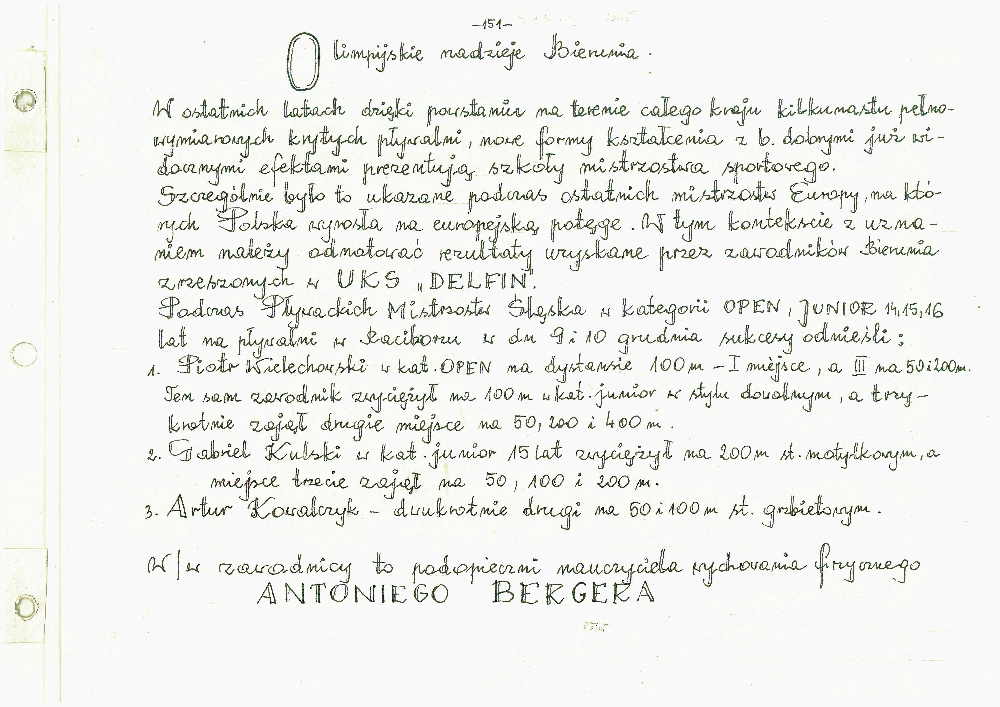 -151-
Olimpijskie nadzieje Bierunia.
W ostatnich latach dzięki powstaniu na terenie całego kraju kilkunastu pełno-
wymiarowych krytych pływalni, nowe formy kształcenia z b. dobrymi już wi-
docznymi efektami prezentują szkoły mistrzostwa sportowego.
Szczególnie było to ukazane podczas ostatnich mistrzostw Europy, na któ-
rych Polska wyrosła na europejską potęgę. W tym kontekście z uzna-
niem należy odnotować rezultaty uzyskane przez zawodników Bierunia
zrzeszonych w UKS „DELFIN".
Podczas Pływackich Mistrzostw Śląska w kategorii OPEN, JUNIOR 14,15,16
lat na pływalni w Raciborzu w dn 9 i 10 grudnia sukcesy odnieśli:
1. Piotr Wielechowski w kat. OPEN na dystansie 100 m – I miejsce, a III na 50 i 200m.
Ten sam zawodnik zwyciężył na 100 m w kat. junior w stylu dowolnym, a trzy-
krotnie zajął drugie miejsce na 50, 200 i 400 m.
2. Gabriel Kulski w kat. junior 15 lat zwyciężył na 200 m st. motylkowym, a
miejsce trzecie zajął na 50, 100 i 200 m.
3. Artur Kowalczyk – dwukrotnie drugi na 50 i 100 m st. grzbietowym.
W/w zawodnicy to podopieczni nauczyciela wychowania fizycznego
ANTONIEGO BERGERA